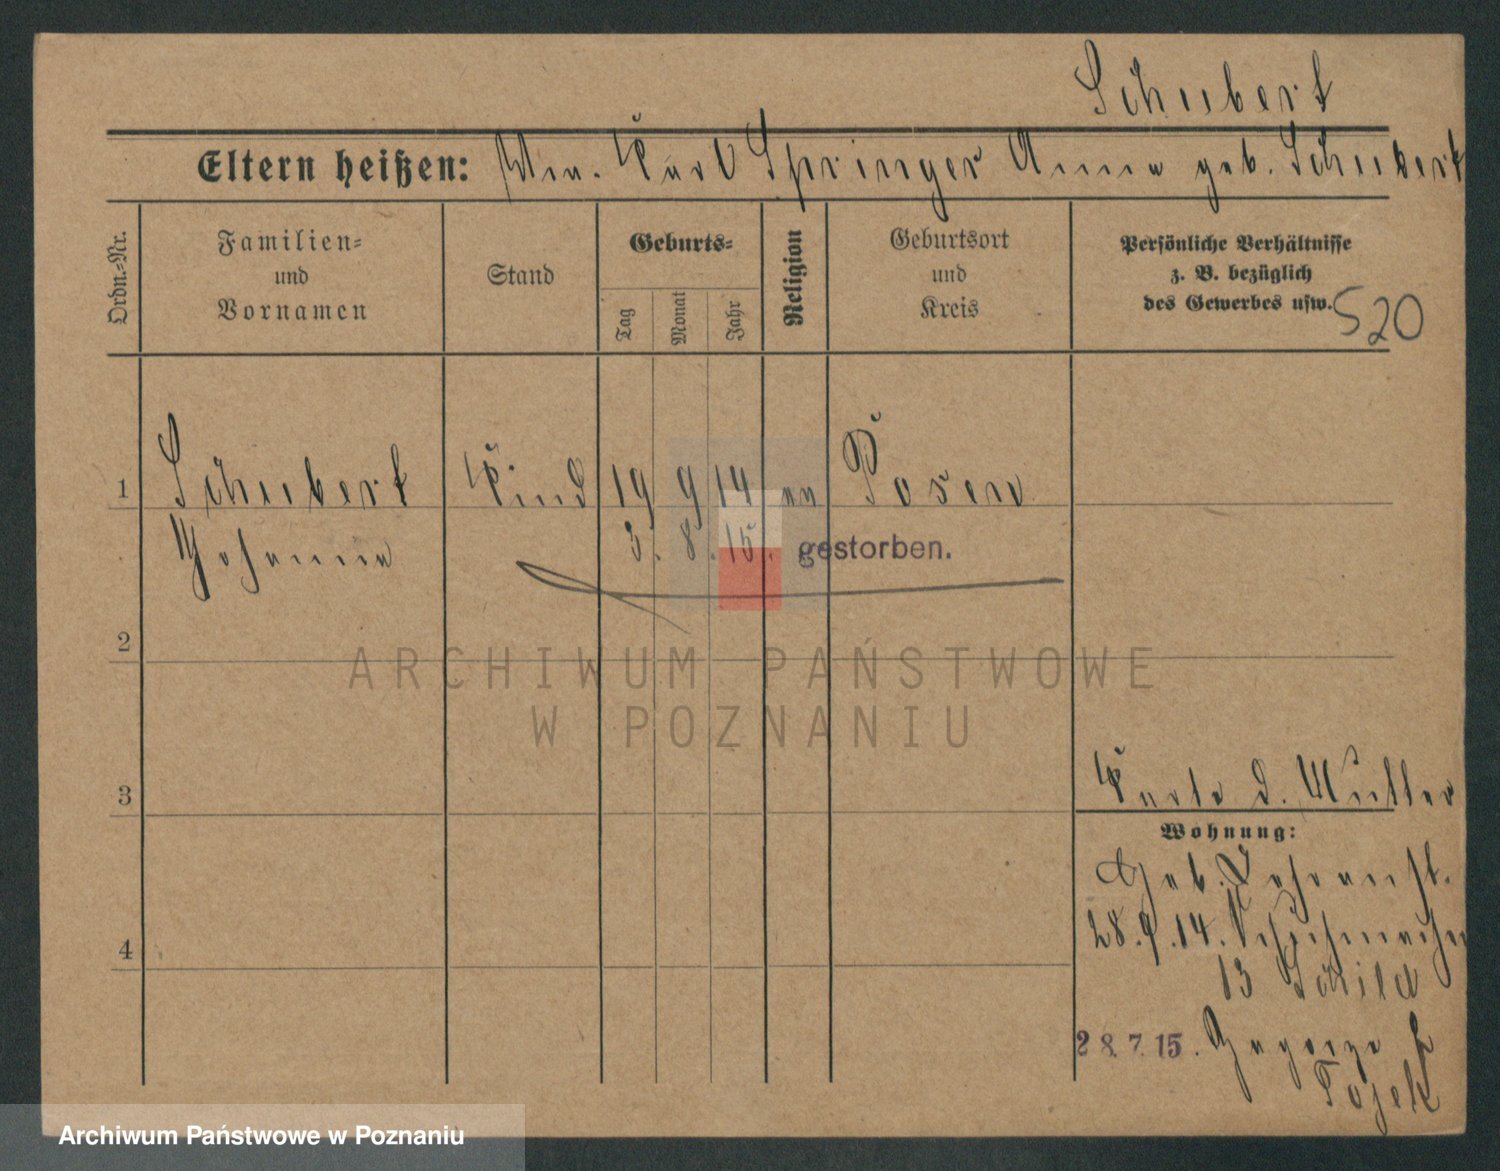 Schubert
Eltern heißen: Karl Springer Anna geb. Schubert
Ordn.=Nr.
Familien=
und
Vornamen
Stand
Geburts=
Tag
Monat
Jahr
Religion
Geburtsort
und
Kreis
Persönliche Verhältnisse
z. B. bezüglich
des Gewerbes usw.
520
1 Schubert Kind 19 9 14 Posen
Johanna 3. 8. 15. gestorben.
2
ARCHIWUM PAŃSTWOWE
W POZNANIU
3
Karte d. Mutter
Wohnung:
Geb.
28.9.14.
13 Schild
4
28.7.15.
Archiwum Państwowe w Poznaniu